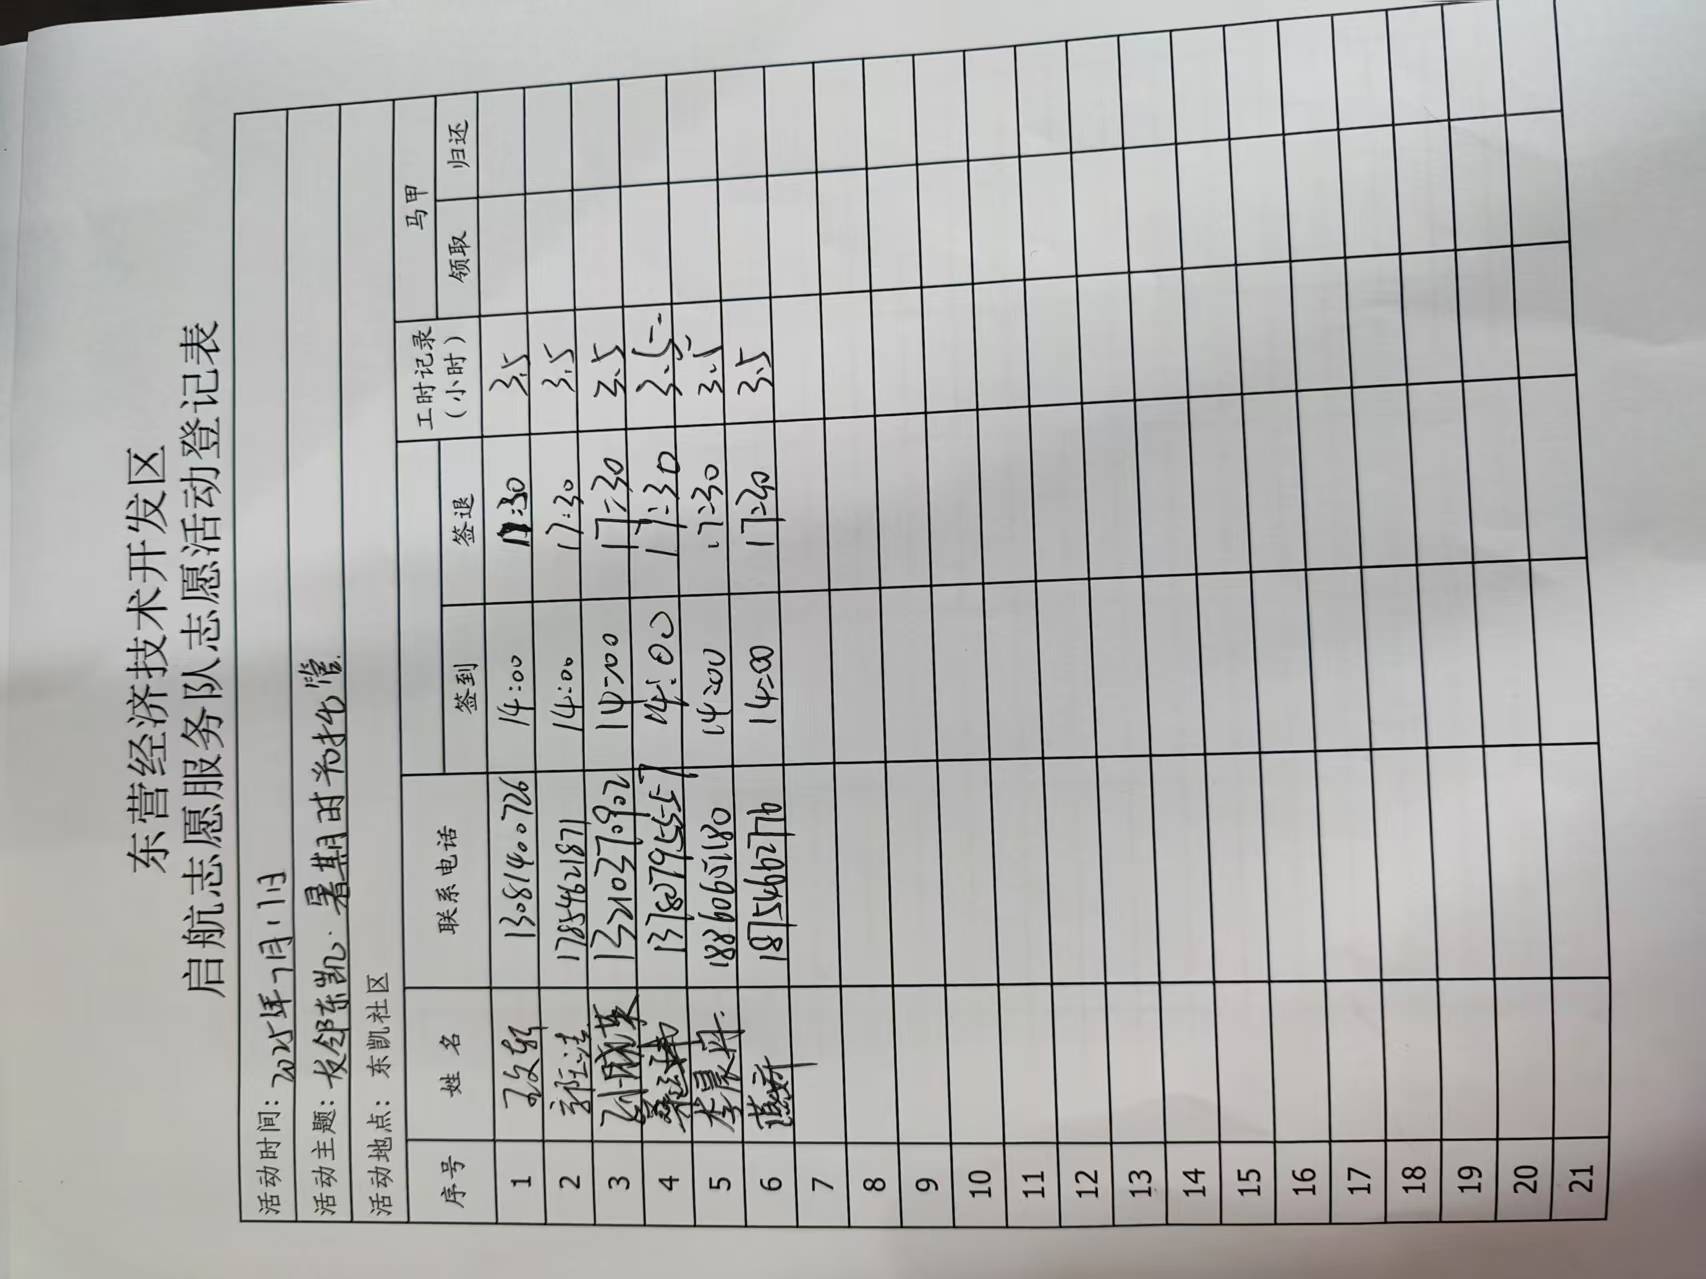 东营经济技术开发区
启航志愿服务队志愿活动登记表
活动时间：2025年7月11日
活动主题：友邻东凯·暑期时光托管
活动地点：东凯社区
序号 姓名 联系电话 签到 签退 工时记录（小时） 马甲 领取 归还
1 13081400726 14:00 17:30 3.5
2 17854621871 14:00 17:30 3.5
3 13210370902 14:00 17:30 3.5
4 13780795557 14:00 17:30 3.5
5 李晨丹 18860651180 14:00 17:30 3.5
6 18754662776 14:00 17:30 3.5
7
8
9
10
11
12
13
14
15
16
17
18
19
20
21